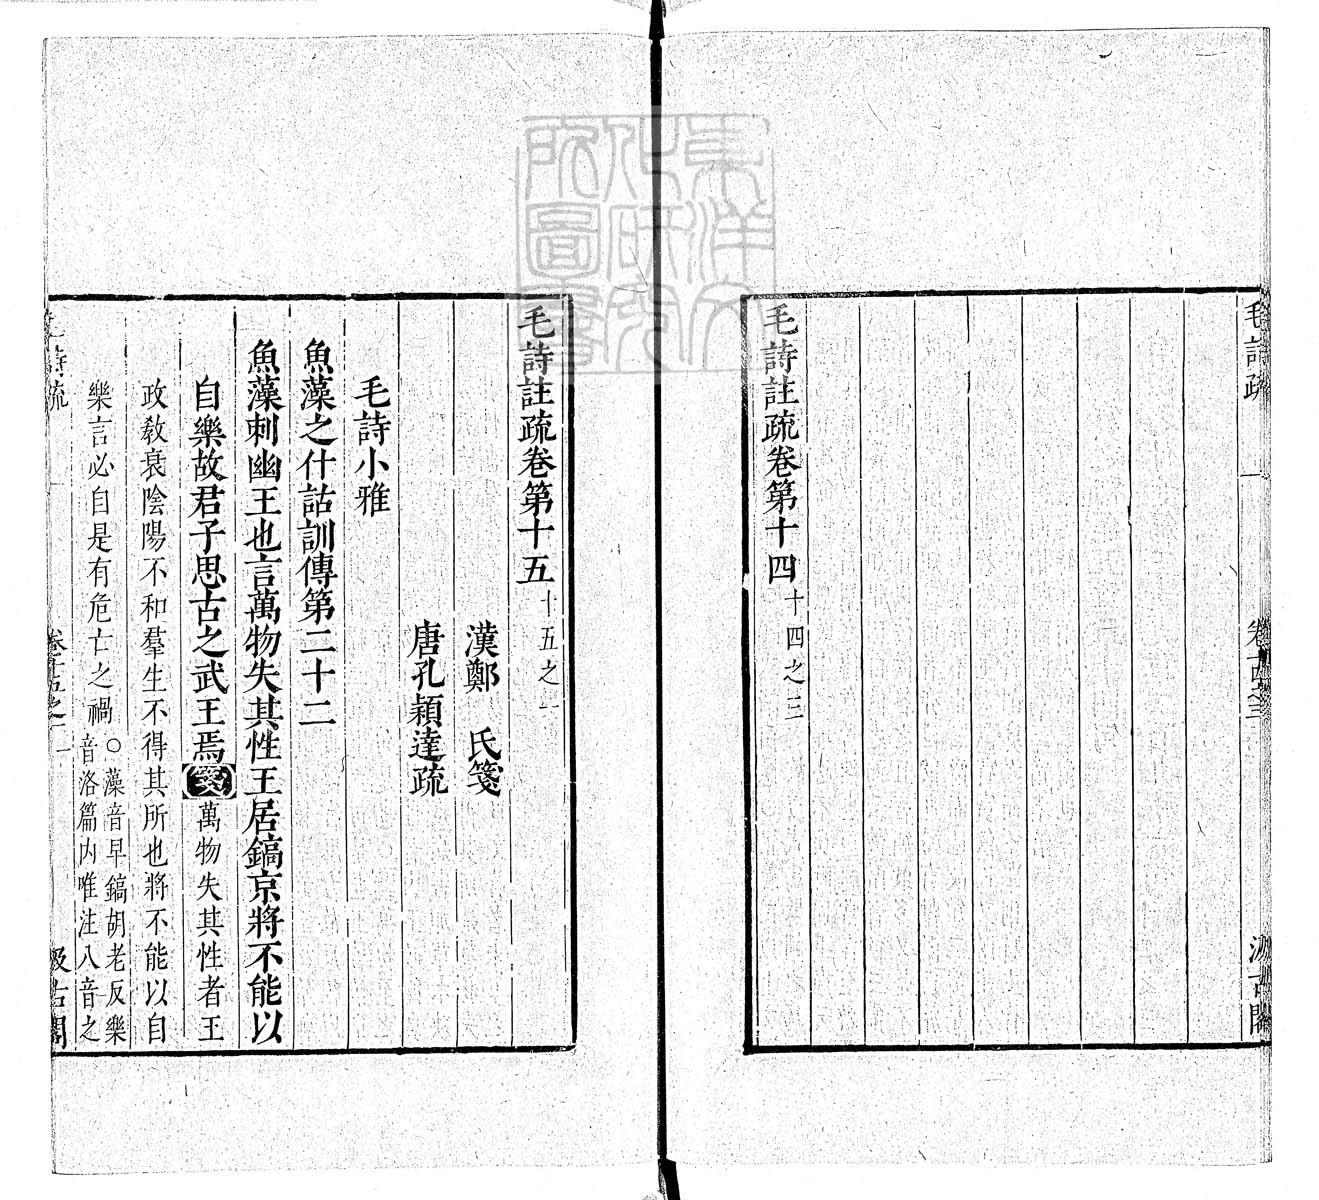 毛詩疏 一 卷十四之三 汲古閣
毛詩註疏卷第十四 十四之三
毛詩註疏卷第十五 十五之一
漢鄭 氏箋
唐孔穎達疏
毛詩小雅
魚藻之什詁訓傳第二十二
魚藻刺幽王也言萬物失其性王居鎬京將不能以
自樂故君子思古之武王焉箋萬物失其性者王
政教衰陰陽不和羣生不得其所也將不能以自
樂言必自是有危亡之禍
○藻音早鎬胡老反樂
音洛篇內唯注八音之
毛詩疏 卷十五之一 一 汲古閣
東洋文化研究所圖書